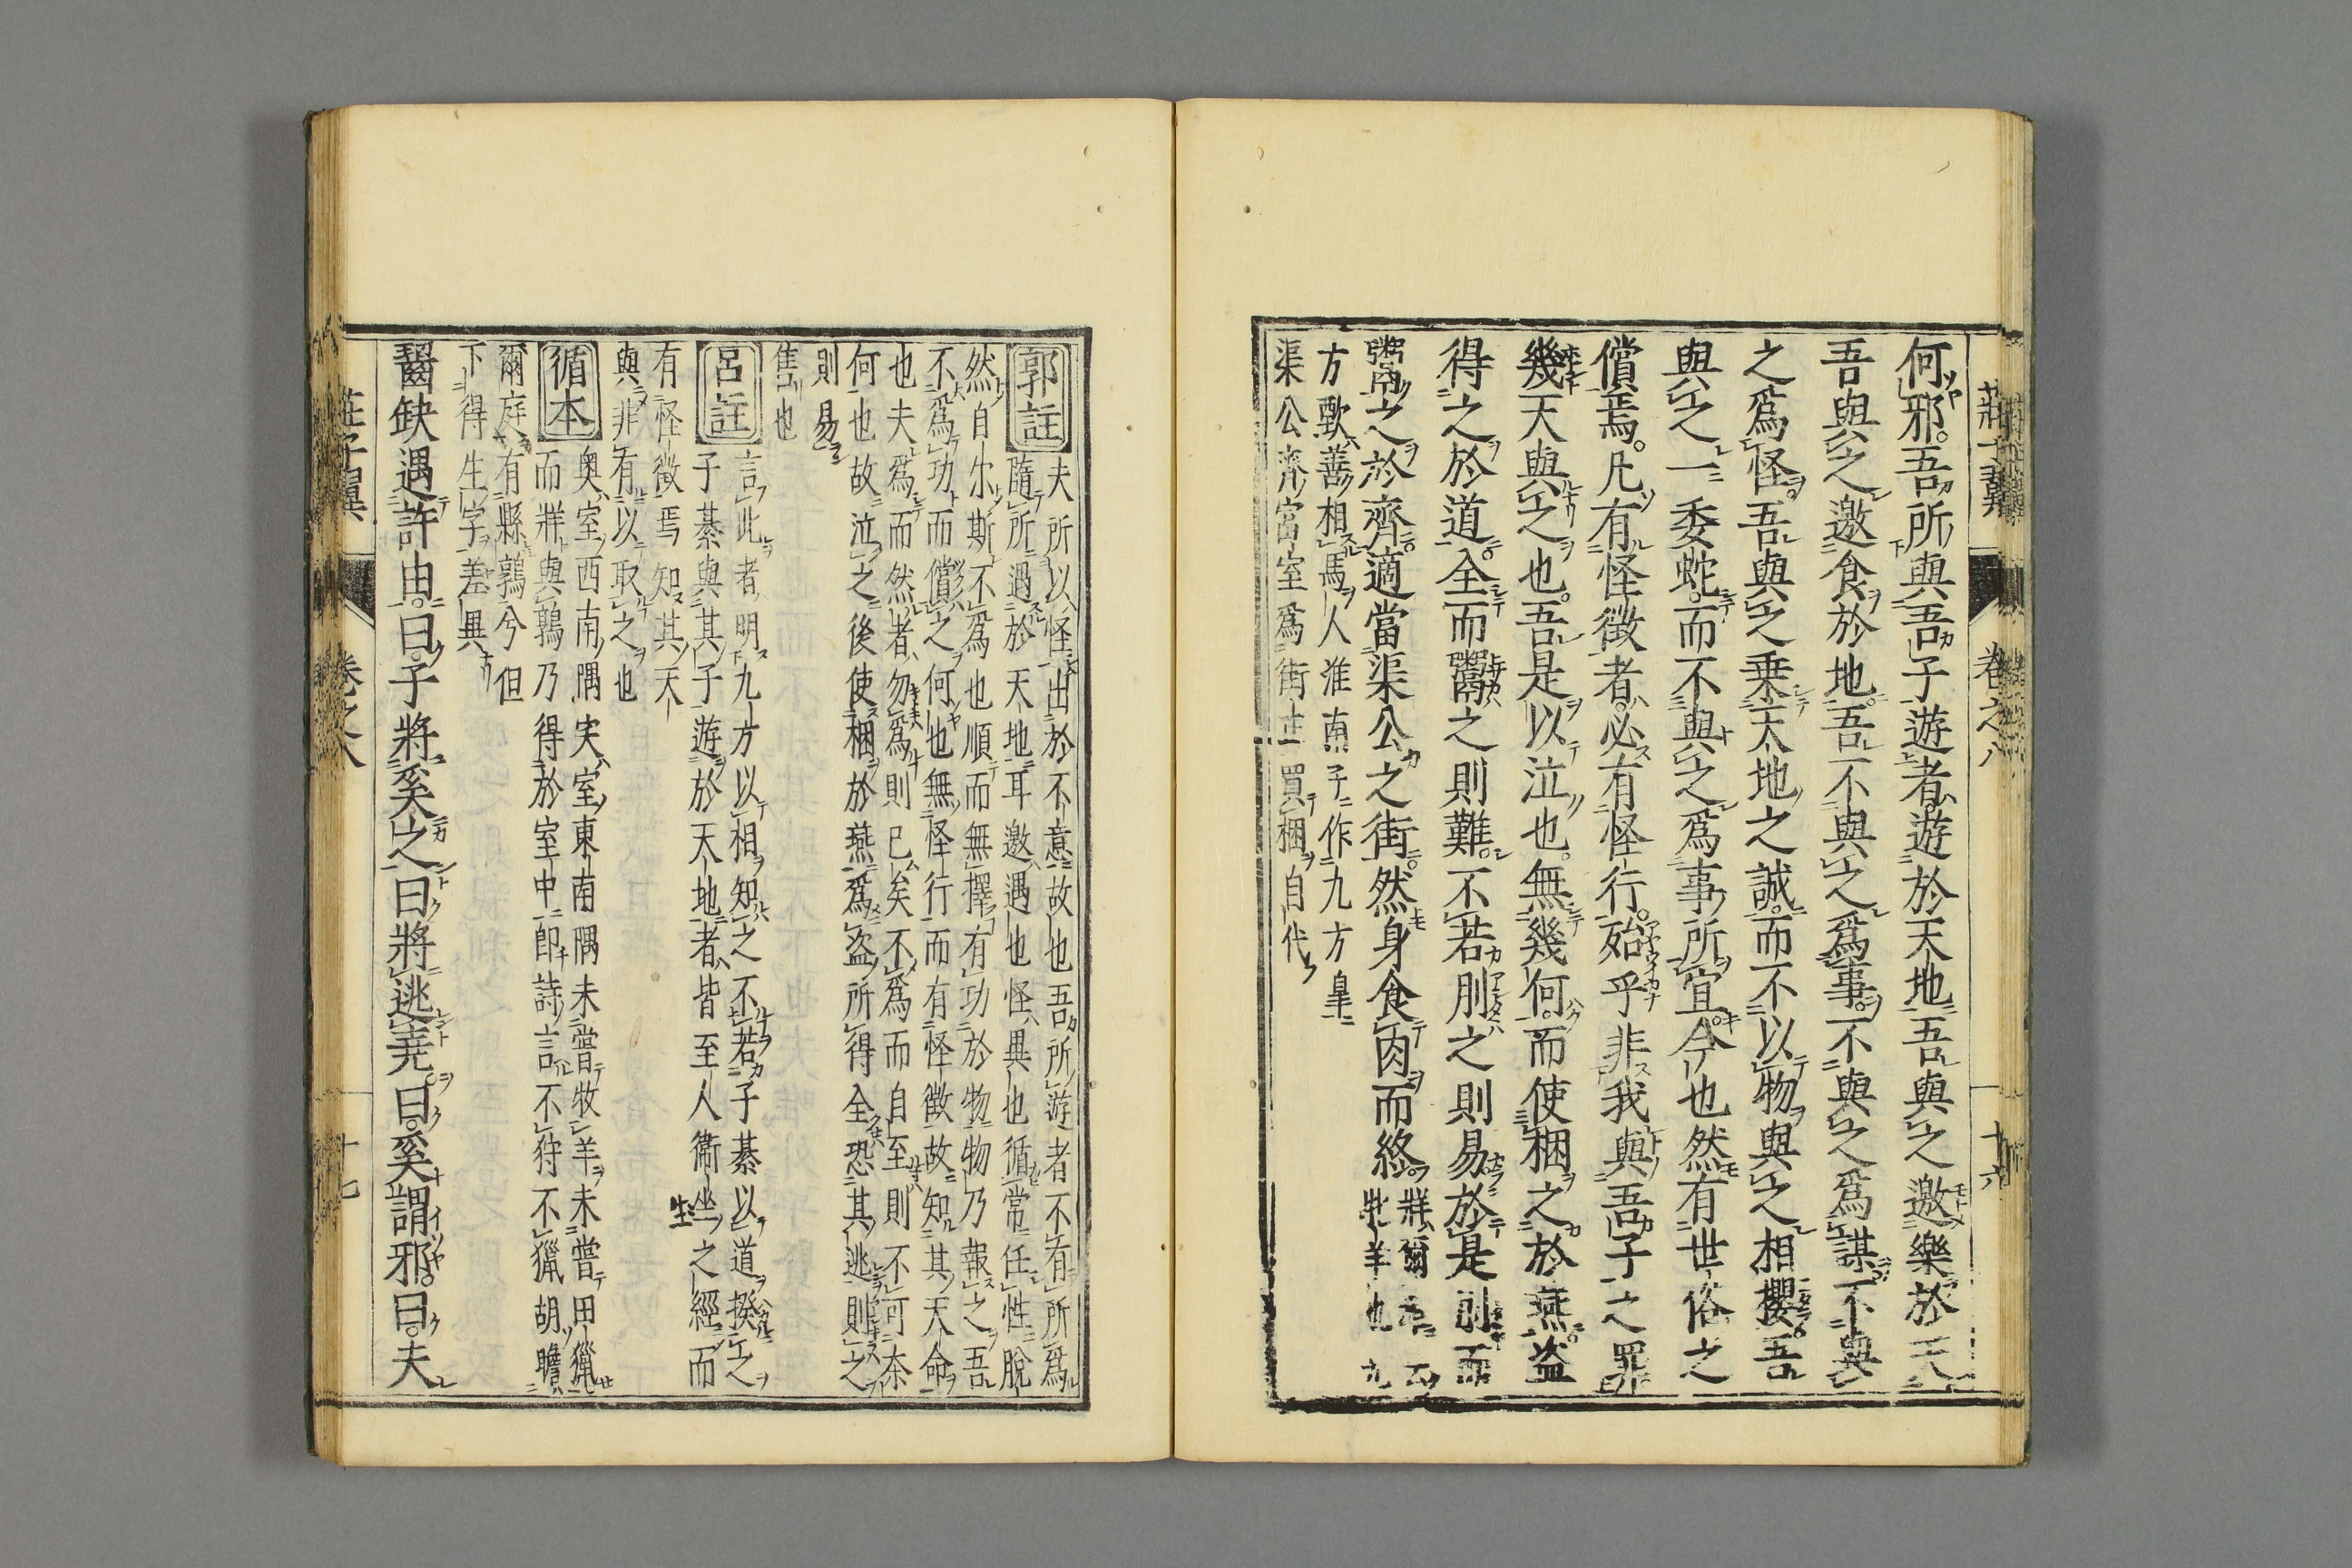 莊子翼 卷之八 十六
何邪。吾所與吾子遊者。遊於天地。吾與之邀樂於天
吾與之邀食於地。吾不與之爲事。不與之爲謀。不與
之爲怪。吾與之乗天地之誠。而不以物與之相攖。吾
與之一委蛇。而不與之爲事所宜。今也然有世俗之
償焉。凡有怪徵者。必有怪行。殆乎非我與吾子之罪
幾天與之也。吾是以泣也。無幾何。而使梱之於燕。盗
得之於道。全而鬻之則難。不若刖之則易。於是刖而
鬻之於齊。適當渠公之街。然身食肉而終。
牂爾
牝羊也 九
方歅善相馬人淮南子作九方皐
渠公齊富室爲街 買梱自代
郭註
夫所以怪出於不意故也吾所游者不有所爲
隨所遇於天地耳邀遇也怪異也循常任性脫
然自尓斯不爲也順而無擇有功於物物乃報之吾
不爲功而償之何也無怪行而有怪徴故知其天命
也夫爲而然者勿爲則已矣不爲而自至則不可奈
何也故泣之後使梱於燕爲盗所得全恐其逃則之
則易
售也
呂註
言此者明九方以相知之不若子綦以道揆之
子綦與其子遊於天地者皆至人衞生之經而
有怪徴焉知其天
與非有以取之也
循本
奥室西南隅宎室東南隅未嘗牧羊未嘗田獵
而牂與鶉乃得於室中即詩言不狩不獵胡瞻
爾庭有縣鶉兮但
下得生字差異
齧缺遇許由。曰。子將奚之曰將逃堯。曰。奚謂邪。曰。夫
莊子翼 卷之八 十七